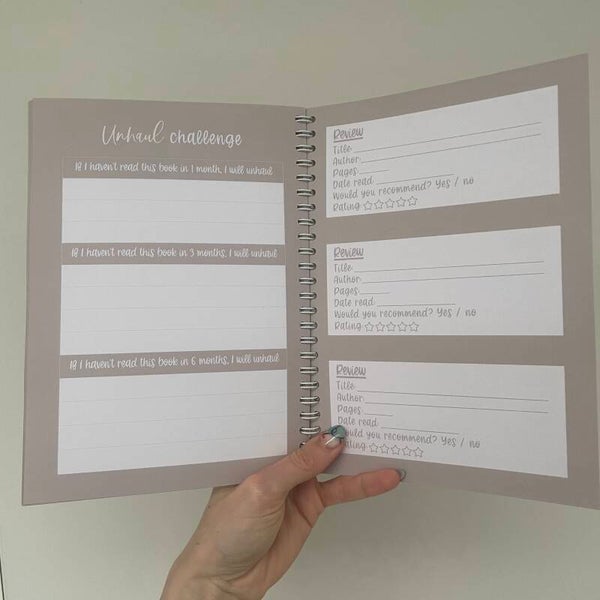 Unhaul challenge
If I haven't read this book in 1 month, I will unhaul
If I haven't read this book in 3 months, I will unhaul
If I haven't read this book in 6 months, I will unhaul
Review
Title
Author
Pages
Date read
Would you recommend? Yes / no
Rating
Review
Title
Author
Pages
Date read
Would you recommend? Yes / no
Rating
Review
Title
Author
Pages
Date read
would you recommend? Yes / no
Rating